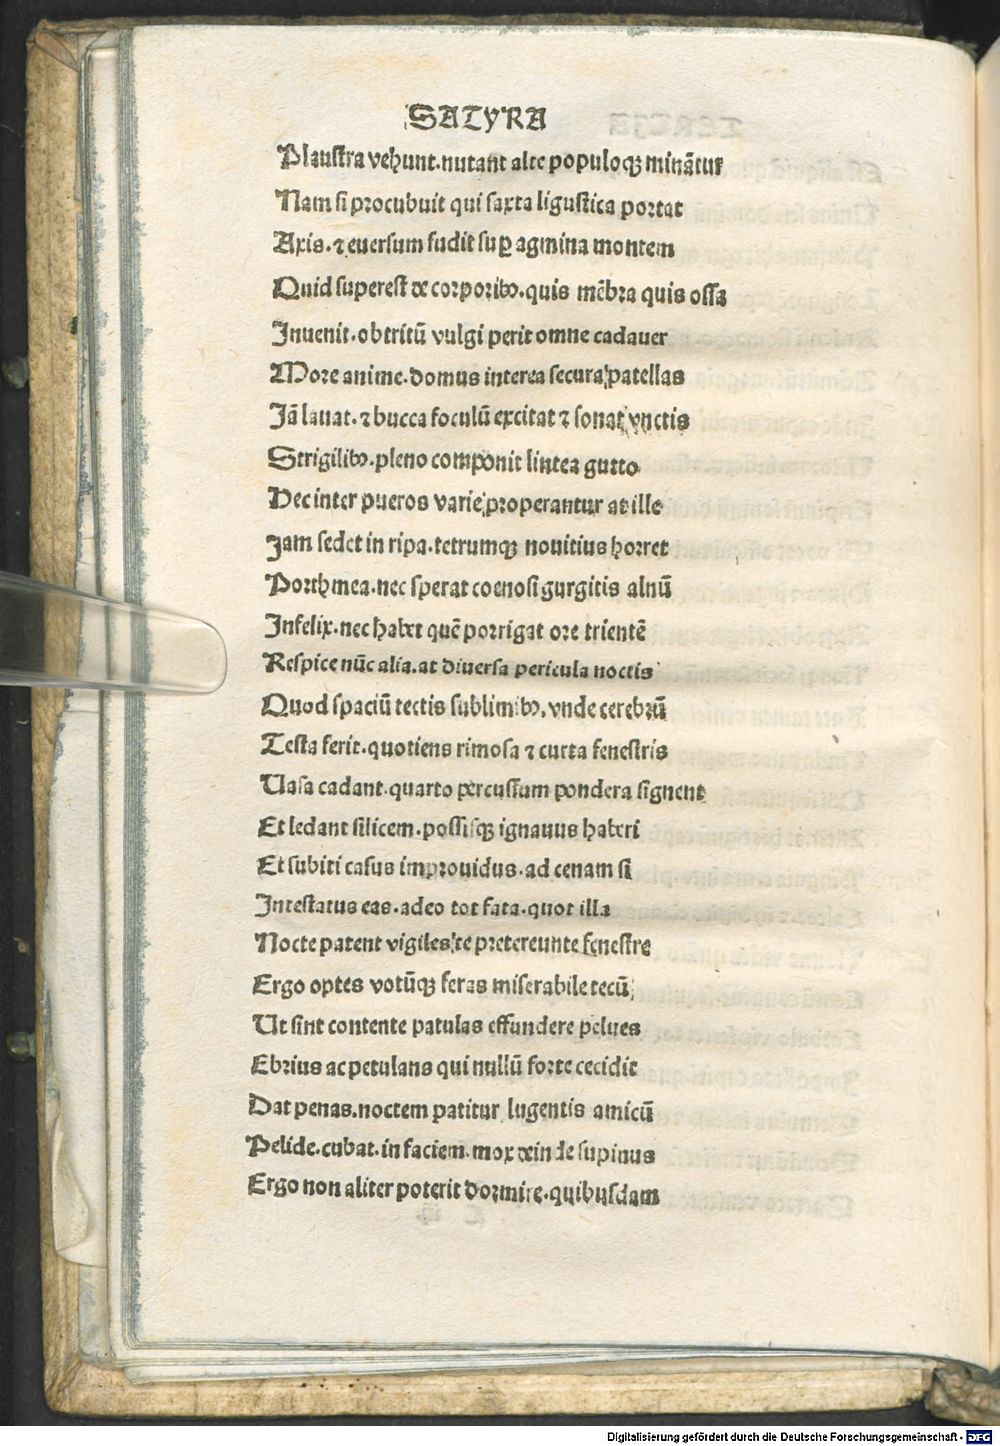 SATYRA
Plaustra vehunt. nutant alte populoqꝫ minãtur
Nam si procubuit qui saxta ligustica portat
Axis. ⁊ euersum fudit suꝑ agmina montem
Quid superest de corporibꝰ. quis mẽbra quis ossa
Inuenit. obtritũ vulgi perit omne cadauer
More anime. domus interea secura patellas
Jã lauat. ⁊ bucca foculũ excitat ⁊ sonat vnctis
Strigilibꝰ. pleno componit lintea gutto
Hec inter pueros varie properantur at ille
Jam sedet in ripa. tetrumqꝫ nouitius horret
Porthmea. nec sperat coenosi gurgitis alnũ
Infelix. nec habet quẽ porrigat ore trientẽ
Respice nũc alia. at diuersa pericula noctis
Quod spaciũ tectis sublimibꝰ. vnde cerebrũ
Testa ferit. quotiens rimosa ⁊ curta fenestris
Uasa cadant. quarto percussum pondera signent
Et ledant silicem. possisqꝫ ignauus haberi
Et subiti casus improuidus. ad cenam si
Intestatus eas. adeo tot fata. quot illa
Nocte patent vigiles te pretereunte fenestre
Ergo optes votũqꝫ feras miserabile tecũ
Ut sint contente patulas effundere pelues
Ebrius ac petulans qui nullũ forte cecidit
Dat penas. noctem patitur lugentis amicũ
Pelide. cubat. in faciem. mox deinde supinus
Ergo non aliter poterit dormire. quibusdam
Digitalisierung gefördert durch die Deutsche Forschungsgemeinschaft - DFG